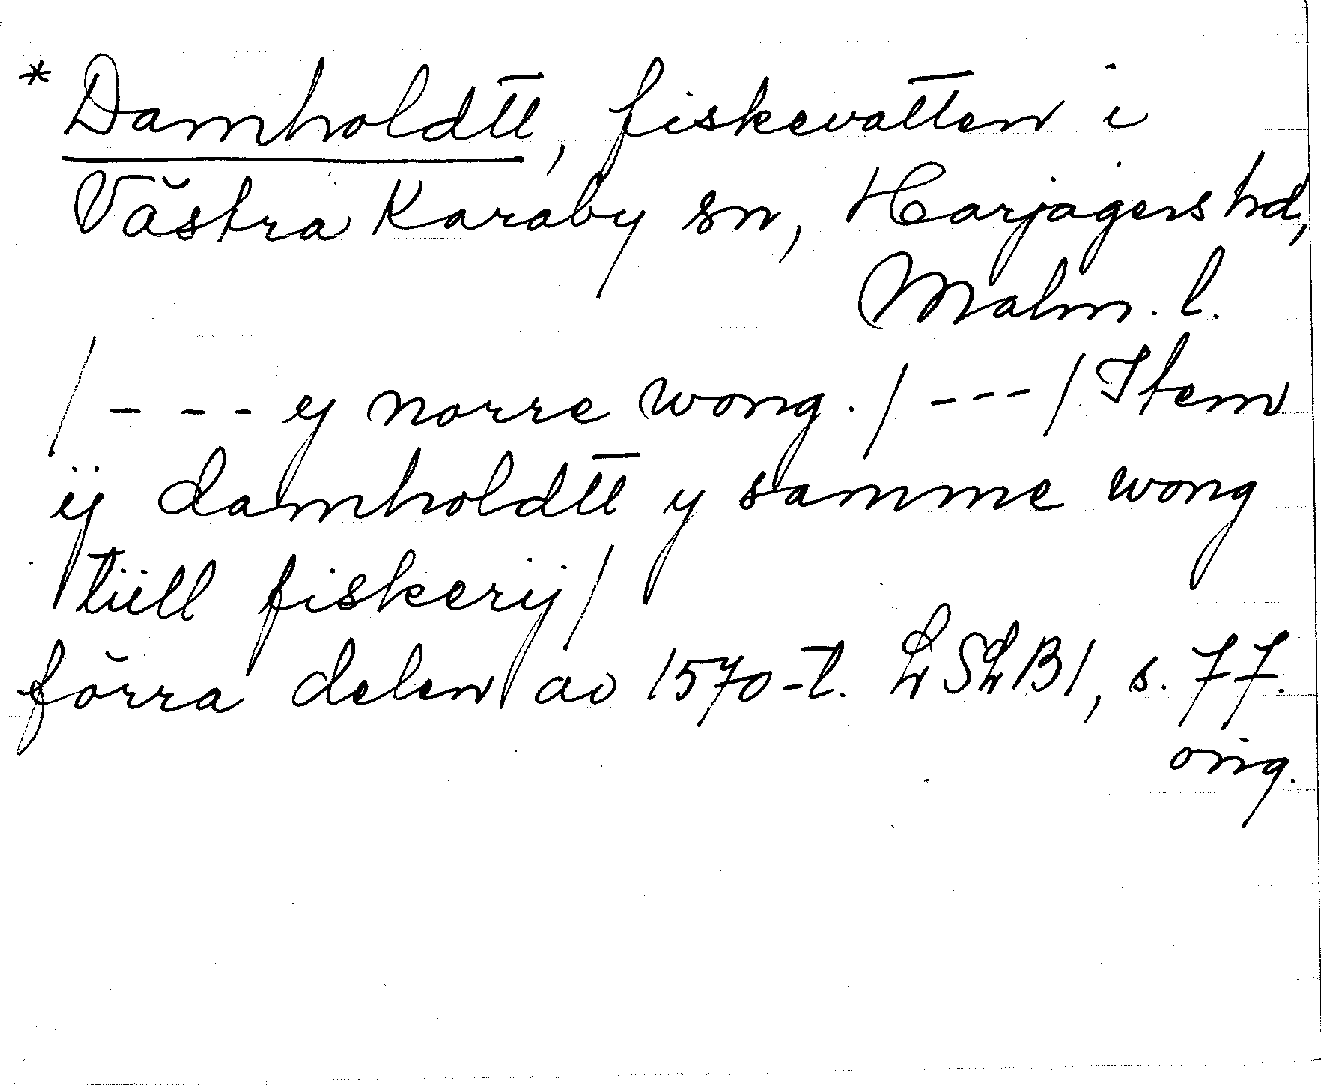 * Damholdtt, fiskevatten i
Västra Karaby sn, Harjagers hd,
Malm. l.
/ - - - y norre wong. / - - - / Item
ÿ damholdtt y samme wong
tiill fiskerij /
förra delen av 1570-t. LSLB1, s. 77.
orig.